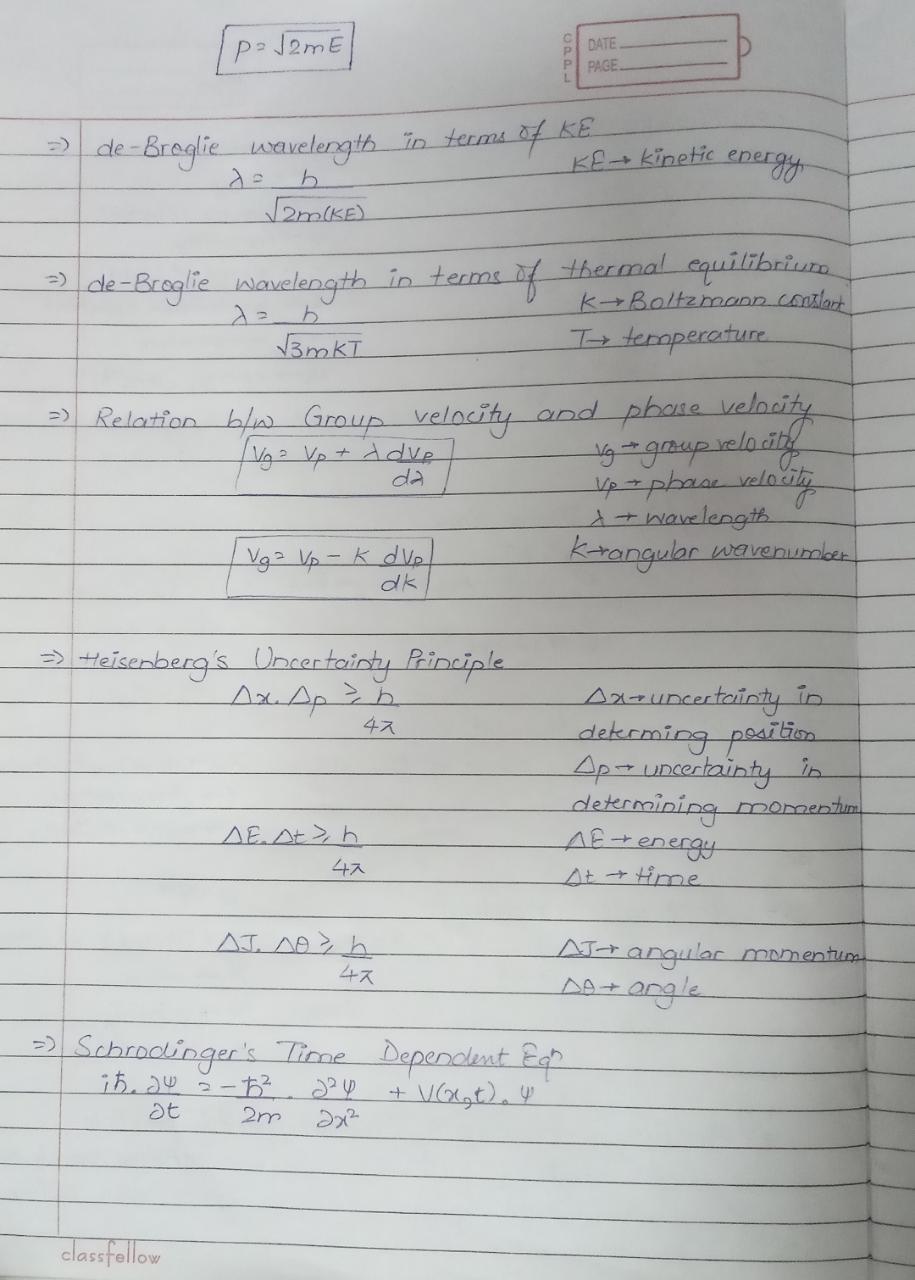 p = √2mE
CPPL
DATE
PAGE
⇒ de-Broglie wavelength in terms of KE
KE → kinetic energy
λ = h / √2m(KE)
⇒ de-Broglie wavelength in terms of thermal equilibrium
λ = h / √3mKT
K → Boltzmann constant
T → temperature
⇒ Relation b/w Group velocity and phase velocity
Vg = Vp + λ dVp / dλ
Vg → group velocity
Vp → phase velocity
λ → wavelength
Vg = Vp - K dVp / dk
K → angular wavenumber
⇒ Heisenberg's Uncertainty Principle
Δx. Δp ≥ h / 4π
Δx → uncertainty in
determing position
Δp → uncertainty in
determining momentum
ΔE. Δt ≥ h / 4π
ΔE → energy
Δt → time
ΔJ. Δθ ≥ h / 4π
ΔJ → angular momentum
Δθ → angle
⇒ Schrodinger's Time Dependent Eqⁿ
iħ. ∂Ψ / ∂t = -ħ² / 2m . ∂²Ψ / ∂x² + V(x,t). Ψ
classfellow